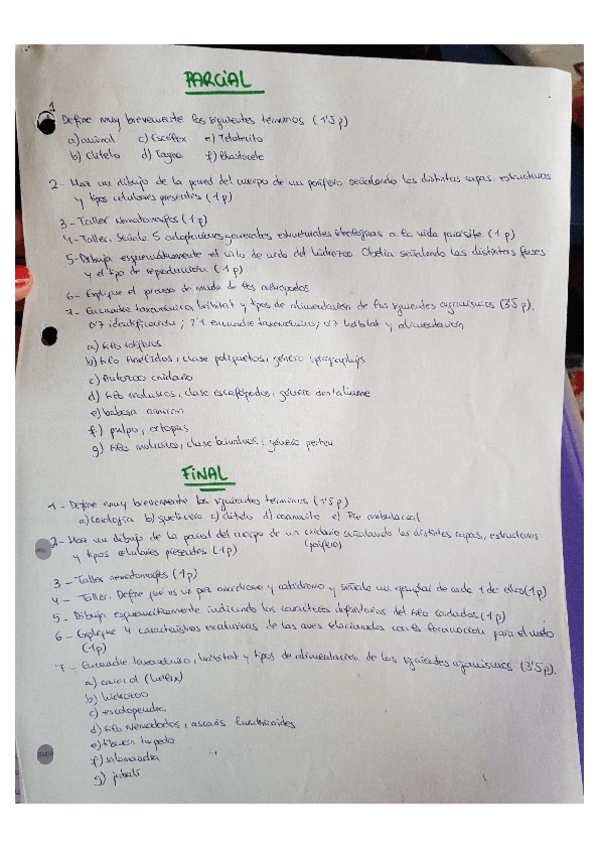 PARCIAL
1 Define muy brevemente los siguientes terminos (1'5p)
a) animal c) Escólex e) Telotroco
b) Clitelo d) Tagma f) Blastocele
2- Haz un dibujo de la pared del cuerpo de un porifero señalando las distintas capas, estructuras
y tipos celulares presentes (1p)
3- Taller Nematomorfos (1p)
4- Taller. Señale 5 adaptaciones generales estructurales a la vida parásita (1p)
5- Dibuja esquemáticamente el ciclo de vida del hidrozoo Obelia señalando las distintas fases
y el tipo de reproducción (1p)
6- Explique el proceso de muda de los artrópodos
7- Encuadre taxonómico, habitat y tipos de alimentación de los siguientes organismos (3'5p).
0'7 identificación; 2'1 encuadre taxonómico; 0'7 habitat y alimentación
a) Filo rotíferos
b) Filo Anélidos, clase poliquetos, género
c) Antozoo cnidario
d) Filo moluscos, clase escafópodos, género dentalium
e) babosa
f) pulpo, octopus
g) Filo moluscos, clase bivalvos; género pecten
FINAL
1- Define muy brevemente los siguientes terminos (1'5p)
a) b) quelicero c) clitelo d) e) Pie ambulacral
2- Haz un dibujo de la pared del cuerpo de un cnidario señalando las distintas capas, estructuras
(porífero)
y tipos celulares presentes (1p)
3- Taller nematomorfos (1p)
4- Taller. Define que es un pez anadromo y catádromo y señale un ejemplar de cada 1 de ellos (1p)
5- Dibuja esquemáticamente indicando los caracteres del filo cordados (1p)
6- Explique 4 características exclusivas de las aves relacionados con la para el vuelo
(1p)
7- Encuadre taxonómico, habitat y tipos de alimentación de los siguientes organismos (3'5p).
a) caracol (helix)
b) hidrozoo
c) escolopendra
d) Filo Nematodos, ascaris lumbricoides
e) tiburon torpedo
f) salamandra
g) jabalí